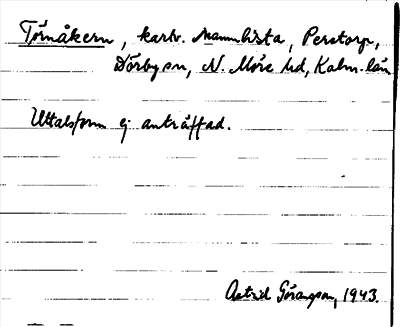 Törnåkern, kartv. Mannbista, Perstorp,
Dörby sn, N. Möre hd, Kalm. län
Uttalsform ej anträffad.
Astrid Göransson, 1943.